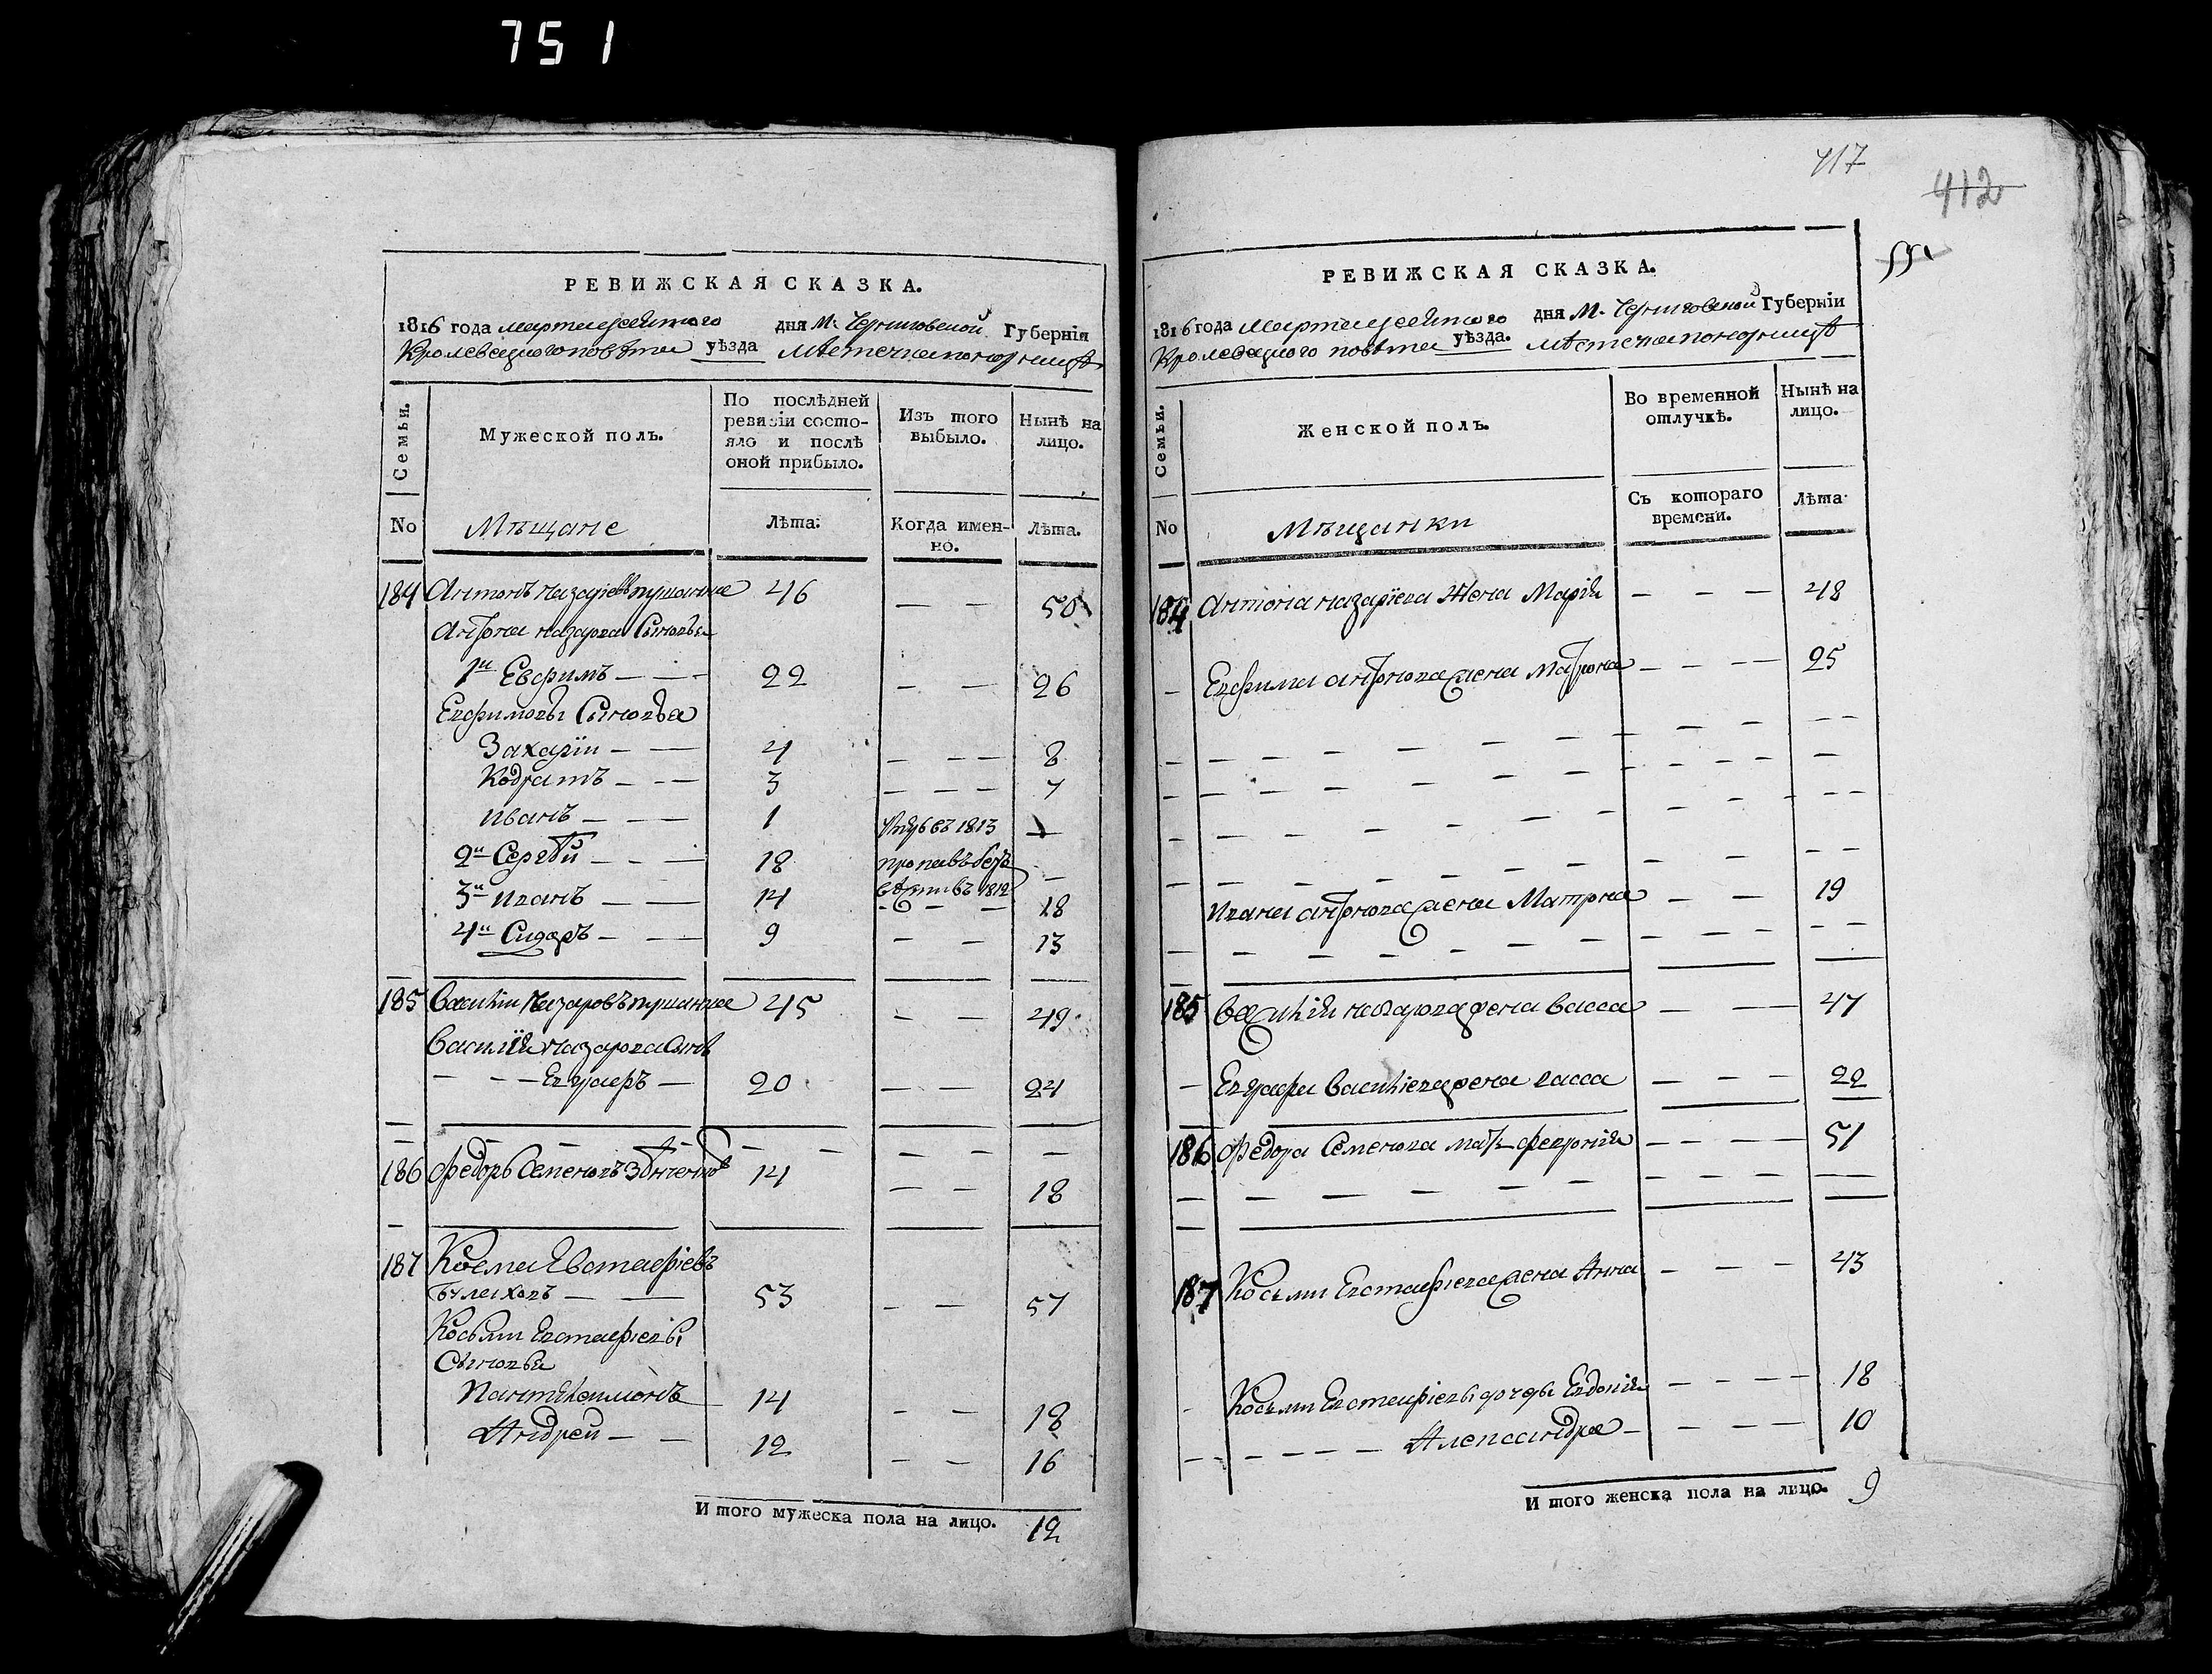 751
РЕВИЖСКАЯ СКАЗКА.
1816 года марта дня М. Черниговской Губерніи
Кролевецкого повѣта уѣзда Мѣстечка
Семьи.
Мужеской полъ.
По послѣдней ревизіи состояло и послѣ оной прибыло.
Изъ того выбыло.
Нынѣ на лицо.
No
Мѣщане
Лѣта.
Когда именно.
Лѣта.
184 Антонъ Назаріевъ 46 — — 50
Антона Назарова Сыновья
1й Евфимъ — — — 22 — — 26
Евфимовы Сыновья
Захарїи — — 4 — — — 8
Кодратъ — — — 3 — — — 7
Иванъ — — — 1 въ 1813 —
2й Сергѣй — — — 18 пропалъ безъ —
3й Иванъ — — 14 вѣсти въ 1812 18
4й Сидаръ — — 9 — — 13
185 Василіи Назаровъ 45 — — 49
Василія Назарова Сынъ
— — — Евграфъ — 20 — — 24
186 Федоръ Семеновъ 14 — — 18
187 Косма Евстафіевъ
53 — — 57
Косьми Евстафіевы
Сыновья
Пантелеимонъ 14 — — 18
Андреи — — 12 — — 16
И того мужеска пола на лицо. 12
417
412
РЕВИЖСКАЯ СКАЗКА.
1816 года марта дня М. Черниговской Губерніи
Кролевецкого повѣта уѣзда. Мѣстечка
Семьи.
Женской полъ.
Во временной отлучкѣ.
Нынѣ на лицо.
No
Мѣщанки
Съ котораго времени.
Лѣта
184 Антона Назарїева Жена Марія — — — 48
— Евфима Антонова жена Матрона — — — — 25
Ивана Антонова жена Матрона — — 19
185 Василія Назарова жена Васса — — — 47
— Евграфа Василіева жена Васса — — — 22
186 Федора Семенова мать Февронія — — — — 51
187 Косьми Евстафіева жена Анна — — — 43
Косьми Евстафіевы дочеры Евдокія — — — — 18
— — — — — — Александра — — — — 10
И того женска пола на лицо. 9